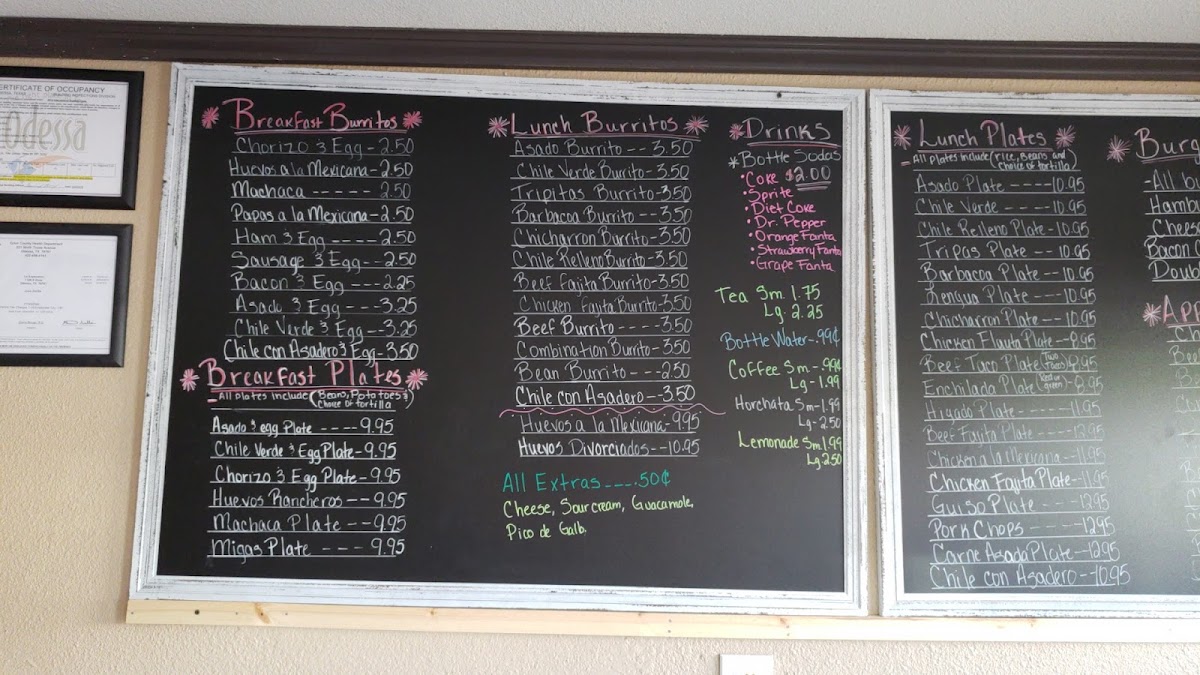 CERTIFICATE OF OCCUPANCY
Odessa
Breakfast Burritos
Chorizo & Egg - 2.50
Huevos a la Mexicana - 2.50
Machaca ----- 2.50
Papas a la Mexicana - 2.50
Ham & Egg ----- 2.50
Sausage & Egg -- 2.50
Bacon & Egg --- 2.25
Asado & Egg --- 3.25
Chile Verde & Egg -- 3.25
Chile con Asadero & Egg - 3.50
Breakfast Plates
All Plates Include (Beans, Potatoes &
choice of tortilla
Asado & egg Plate ---- 9.95
Chile Verde & Egg Plate - 9.95
Chorizo & Egg Plate - 9.95
Huevos Rancheros -- 9.95
Machaca Plate --- 9.95
Migas Plate ---- 9.95
Lunch Burritos
Asado Burrito --- 3.50
Chile Verde Burrito - 3.50
Tripitas Burrito - 3.50
Barbacoa Burrito -- 3.50
Chicharron Burrito - 3.50
Chile Relleno Burrito - 3.50
Beef Fajita Burrito - 3.50
Chicken Fajita Burrito - 3.50
Beef Burrito ---- 3.50
Combination Burrito - 3.50
Bean Burrito --- 2.50
Chile con Asadero -- 3.50
Huevos a la Mexicana - 9.95
Huevos Divorciados -- 10.95
All Extras ---- .50¢
Cheese, Sour cream, Guacamole,
Pico de Gallo.
Drinks
*Bottle Sodas
$2.00
• Coke
• Sprite
• Diet Coke
• Dr. Pepper
• Orange Fanta
• Strawberry Fanta
• Grape Fanta
Tea Sm 1.75
Lg. 2.25
Bottle Water - .99¢
Coffee Sm - .99¢
Lg - 1.99
Horchata Sm - 1.99
Lg - 2.50
Lemonade Sm 1.99
Lg 2.50
Lunch Plates
- All plates include (rice, Beans and
choice of tortilla)
Asado Plate ---- 10.95
Chile Verde --- 10.95
Chile Relleno Plate - 10.95
Tripas Plate -- 10.95
Barbacoa Plate -- 10.95
Lengua Plate --- 10.95
Chicharron Plate - 10.95
Chicken Flauta Plate -- 8.95
Beef Taco Plate (Two Tacos)
Enchilada Plate (Red or green) 8.95
Higado Plate --- 11.95
Beef Fajita Plate --- 12.95
Chicken a la Mexicana - 11.95
Chicken Fajita Plate - 11.95
Guiso Plate ---- 12.95
Pork Chops ---- 12.95
Carne Asada Plate -- 12.95
Chile con Asadero -- 10.95
Burg
- All b
Hamb
Cheese
Bacon
Doub
App